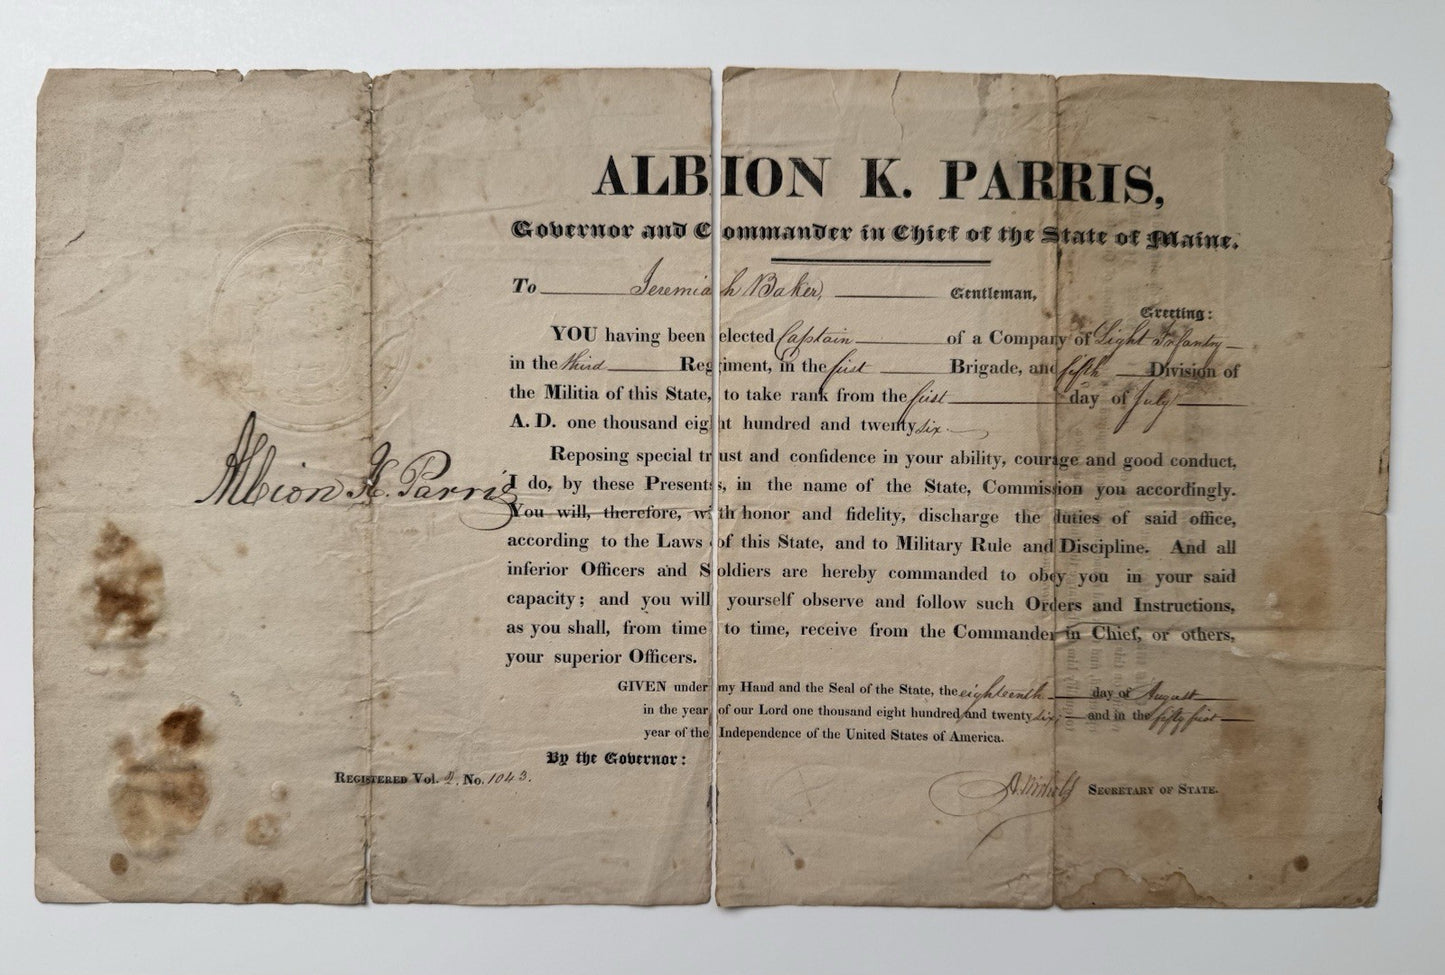 ALBION K. PARRIS,
Governor and Commander in Chief of the State of Maine.
To Jeremiah Baker, Gentleman,
Greeting:
YOU having been elected Captain of a Company of Light Infantry
in the third Regiment, in the first Brigade, and fifth Division of
the Militia of this State, to take rank from the first day of July
A. D. one thousand eight hundred and twenty six.
Reposing special trust and confidence in your ability, courage and good conduct,
Albion K. Parris
I do, by these Presents, in the name of the State, Commission you accordingly.
You will, therefore, with honor and fidelity, discharge the duties of said office,
according to the Laws of this State, and to Military Rule and Discipline. And all
inferior Officers and Soldiers are hereby commanded to obey you in your said
capacity; and you will yourself observe and follow such Orders and Instructions,
as you shall, from time to time, receive from the Commander in Chief, or others,
your superior Officers.
GIVEN under my Hand and the Seal of the State, the eighteenth day of August
in the year of our Lord one thousand eight hundred and twenty six, and in the fifty first
year of the Independence of the United States of America.
By the Governor:
REGISTERED Vol. 2. No. 1043.
A. Nichols SECRETARY OF STATE.